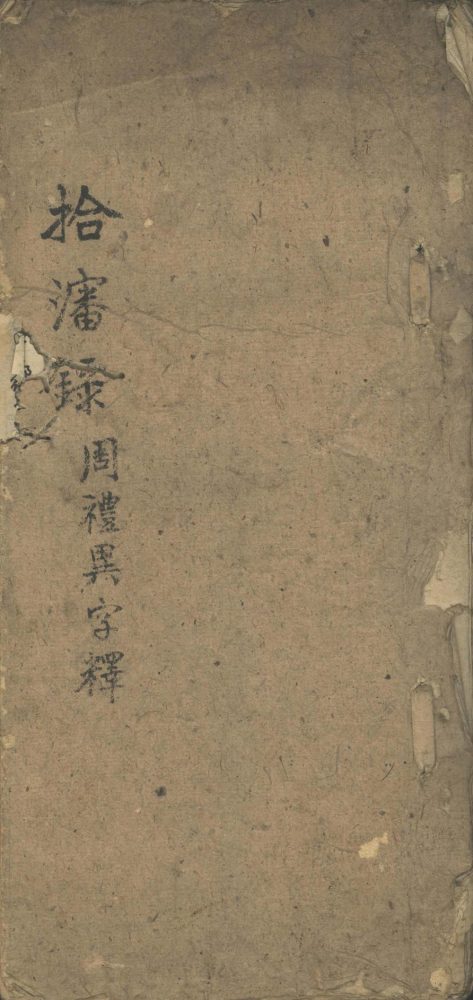 拾瀋録周禮異字釋